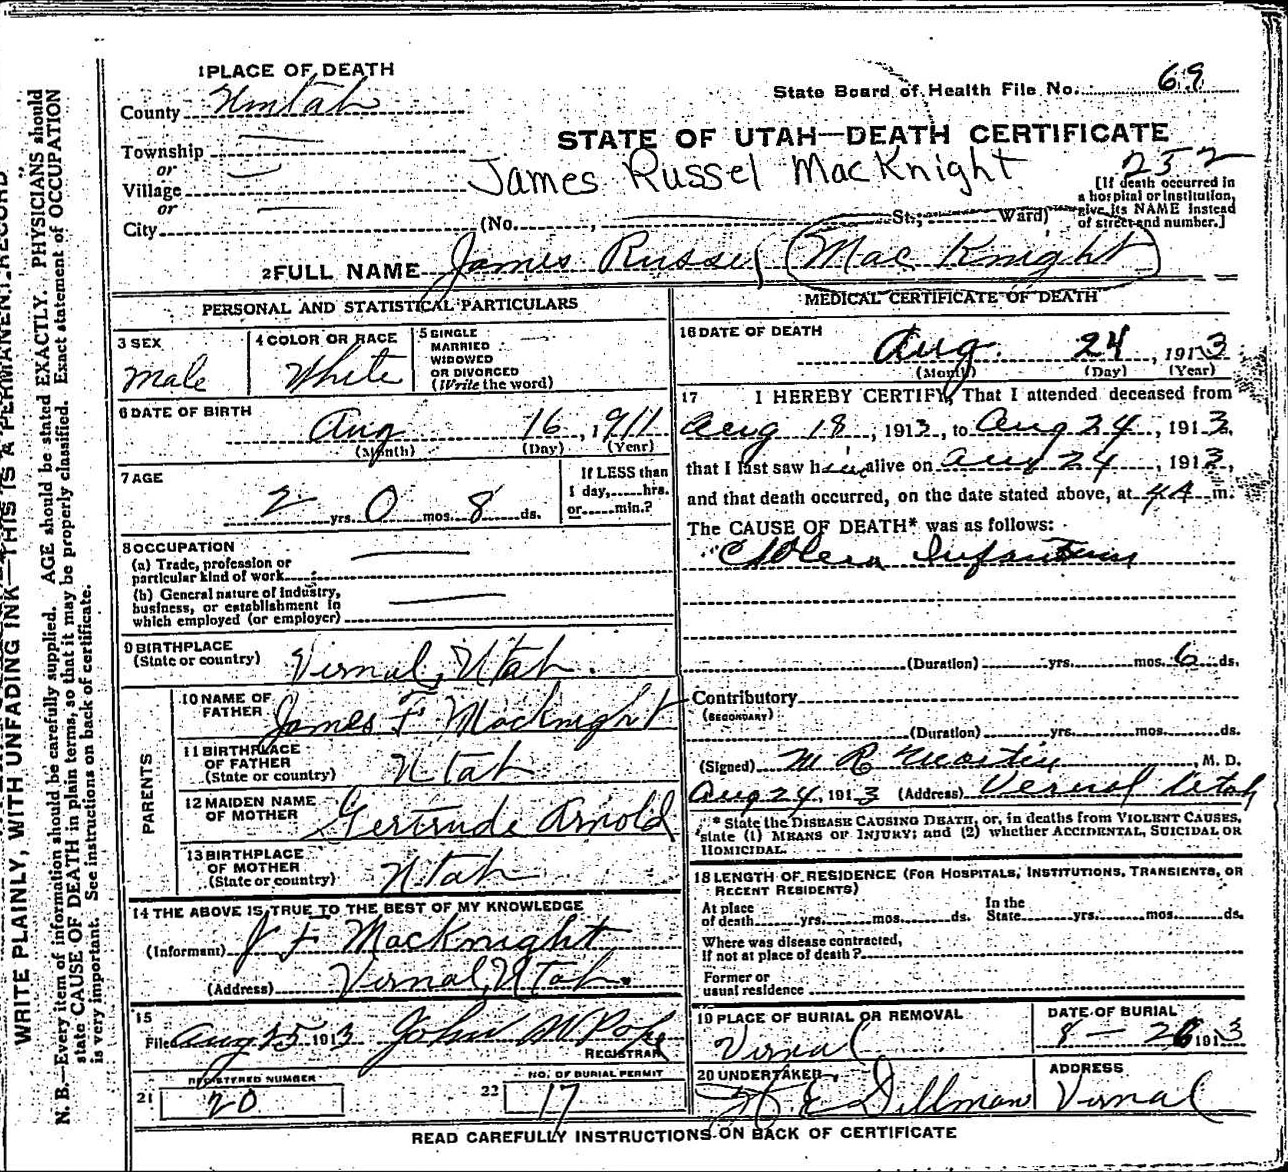 1 PLACE OF DEATH
County Uintah
State Board of Health File No. 69
Township
or
Village
or
City
STATE OF UTAH—DEATH CERTIFICATE
James Russel MacKnight
252
[If death occurred in
a hospital or institution,
give its NAME instead
of street and number.]
(No. , St.; Ward)
2 FULL NAME James Russel Mac Knight
PERSONAL AND STATISTICAL PARTICULARS
3 SEX
Male
4 COLOR OR RACE
White
5 SINGLE
MARRIED
WIDOWED
OR DIVORCED
(Write the word)
6 DATE OF BIRTH
Aug 16, 1911
(Month) (Day) (Year)
7 AGE
2 yrs. 0 mos. 8 ds.
If LESS than
1 day, hrs.
or min.?
8 OCCUPATION
(a) Trade, profession or
particular kind of work
(b) General nature of industry,
business, or establishment in
which employed (or employer)
9 BIRTHPLACE
(State or country) Vernal, Utah.
PARENTS
10 NAME OF
FATHER James F Macknight
11 BIRTHPLACE
OF FATHER
(State or country) Utah
12 MAIDEN NAME
OF MOTHER Gertrude Arnold
13 BIRTHPLACE
OF MOTHER
(State or country) Utah
14 THE ABOVE IS TRUE TO THE BEST OF MY KNOWLEDGE
(Informant) J F MacKnight
(Address) Vernal, Utah.
15
Filed Aug 25 1913 John W Pope
REGISTRAR
REGISTERED NUMBER
21 20
NO. OF BURIAL PERMIT
22 17
MEDICAL CERTIFICATE OF DEATH
16 DATE OF DEATH
Aug. 24, 1913
(Month) (Day) (Year)
17 I HEREBY CERTIFY, That I attended deceased from
Aug 18, 1913, to Aug 24, 1913,
that I last saw him alive on Aug 24, 1913,
and that death occurred, on the date stated above, at 4 A m.
The CAUSE OF DEATH* was as follows:
Cholera Infantum
(Duration) yrs. mos. 6 ds.
Contributory
(SECONDARY)
(Duration) yrs. mos. ds.
(Signed) M R Martin, M. D.
Aug 24, 1913 (Address) Vernal Utah
* State the DISEASE CAUSING DEATH, or, in deaths from VIOLENT CAUSES,
state (1) MEANS OF INJURY; and (2) whether ACCIDENTAL, SUICIDAL OR
HOMICIDAL.
18 LENGTH OF RESIDENCE (FOR HOSPITALS, INSTITUTIONS, TRANSIENTS, OR
RECENT RESIDENTS)
At place
of death yrs. mos. ds. In the
State yrs. mos. ds.
Where was disease contracted,
If not at place of death?
Former or
usual residence
19 PLACE OF BURIAL OR REMOVAL
Vernal
DATE OF BURIAL
8 - 26 1913
20 UNDERTAKER
Dillman
ADDRESS
Vernal
READ CAREFULLY INSTRUCTIONS ON BACK OF CERTIFICATE
WRITE PLAINLY, WITH UNFADING INK—THIS IS A PERMANENT RECORD
N. B.—Every item of information should be carefully supplied. AGE should be stated EXACTLY. PHYSICIANS should
state CAUSE OF DEATH in plain terms, so that it may be properly classified. Exact statement of OCCUPATION
is very important. See instructions on back of certificate.